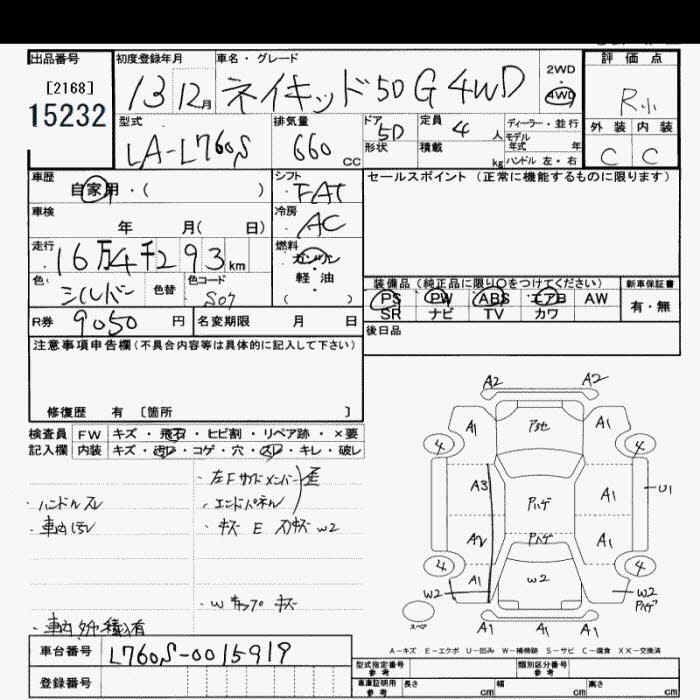 出品番号 初度登録年月 車名・グレード 2WD・4WD 評価点
[2168]
15232 13 12月 ネイキッド50G 4WD R小
型式 排気量 ドア 定員 ディーラー・並行 外装 内装
LA-L760S 660 cc 5D 4人 モデル年式 年 C C
形状 積載 kg ハンドル 左・右
車歴 シフト セールスポイント (正常に機能するものに限ります)
自家用・( ) FAT
車検 冷房
年 月( 日) AC
走行 燃料
16万4千293km ガソリン・軽・油 ( )
色 色替 色コード 装備品 (純正品に限り○をつけてください) 新車保証書
シルバー S07 PS PW ABS エアB AW 有・無
SR ナビ TV カワ
R券 9050円 名変期限 月 日 後日品
注意事項申告欄 (不具合内容等は具体的に記入して下さい)
修復歴 有 [箇所 ]
検査員 FW キズ・飛石・ヒビ割・リペア跡・×要
記入欄 内装 キズ・汚レ・コゲ・穴・スレ・キレ・破レ
・左Fサイドメンバー
・ハンドルスレ ・エンドパネル
・車内汚レ ・キズ E スリキズ W2
・Wキャップ キズ
A2 A2
A1 P他 A1
4 4
A3 Pハゲ A1 U1
A2 Pハゲ A1
4 4
A1 W2
W2 W2
Pハゲ
スペア A1 A1 A1
車台番号 L760S-0015919
A-キズ E-エクボ U-凹み W-補修跡 S-サビ C-腐食 XX-交換済
登録番号
型式指定番号 参考 類別区分番号 参考
車庫証明用 参考 長さ cm 幅 cm 高さ cm